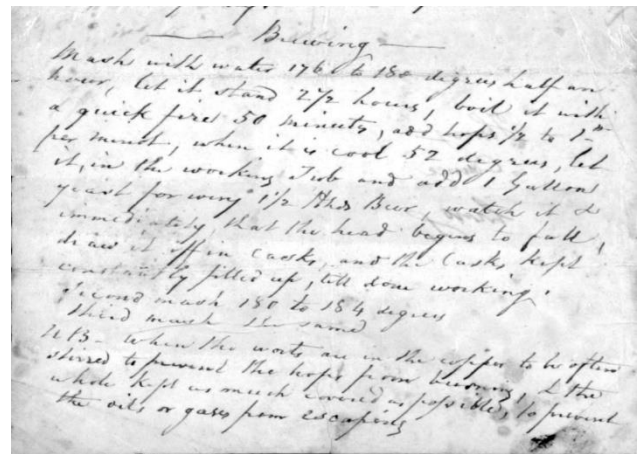 Brewing
Mash with water 176 to 180 degrees half an
hour, let it stand 2 1/2 hours, boil it with
a quick fire 50 minuts, add hops 1/2 to
per minut, when it is cool 52 degrees, let
it, in the working Tub and add 1 Gallon
yeast for 1 1/2 Hhds Beer, watch it &
immediately, that the head begins to fall,
draw it off in casks, and the Casks kept
constantly filled up, till done working.
Second mash 180 to 184 degrees
third mash the same
NB- when the worts are in the copper to be often
stirred to prevent the hops from burning, & the
whole kept as much covered as possible, to prevent
the oils or gases from escaping